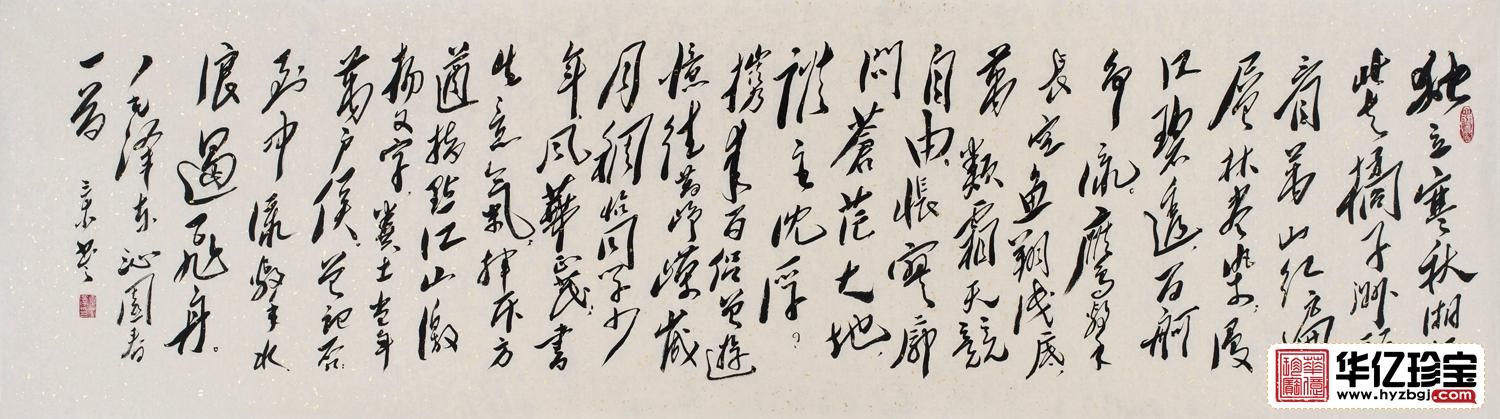 独立寒秋湘
北去橘子洲
看萬山红遍
层林尽染漫
江碧透百舸
争流。鹰擊
長空鱼翔浅底
萬類霜天競
自由，悵寥廓
问蒼茫大地
谁主沈浮。
携来百侣曾遊
憶往昔峥嵘歲
月稠恰同学少
年，风華正茂；書
生意氣，挥斥方
遒指點江山激
扬文字，糞土当年
萬户侯。曾记否
到中流擊水
浪遏飞舟。
毛泽东沁園春
一首
書
华亿珍宝
www.hyzbgj.com